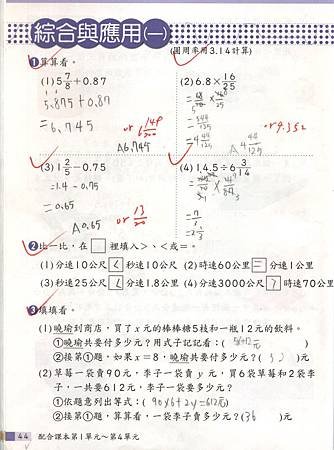 綜合與應用(一)
(圓周率用3.14計算)
1 算算看。
(1) 5 7/8 + 0.87
(2) 6.8 × 16/25
5.875+0.87
= 6.745
or 6 149/200
A 6.745
= 544/125
= 4 44/125
A 4 44/125
or 4.352
(3) 1 2/5 − 0.75
(4) 14.5 ÷ 6 3/14
= 1.4 - 0.75
= 0.65
A 0.65
or 13/20
= 7/3
= 2 1/3
2 比一比,在□裡填入>、<或=。
(1) 分速10公尺 < 秒速10公尺
(2) 時速60公里 = 分速1公里
(3) 秒速25公尺 < 分速1.8公里
(4) 分速3000公尺 > 時速70公里
3 填填看。
(1) 曉瑜到商店,買了x元的棒棒糖5枝和一瓶12元的飲料。
①曉瑜共要付多少元?用式子記記看:( 5x+12元 )
②接第①題,如果x=8,曉瑜共要付多少元?( 52 )元
(2) 草莓一袋賣90元,李子一袋賣y元,買6袋草莓和2袋李
子,一共要612元,李子一袋要多少元?
①依題意列出等式:( 90×6+2y=612元 )
②接第①題,算算看,一袋李子賣多少元?( 36 )元
44 配合課本第1單元~第4單元